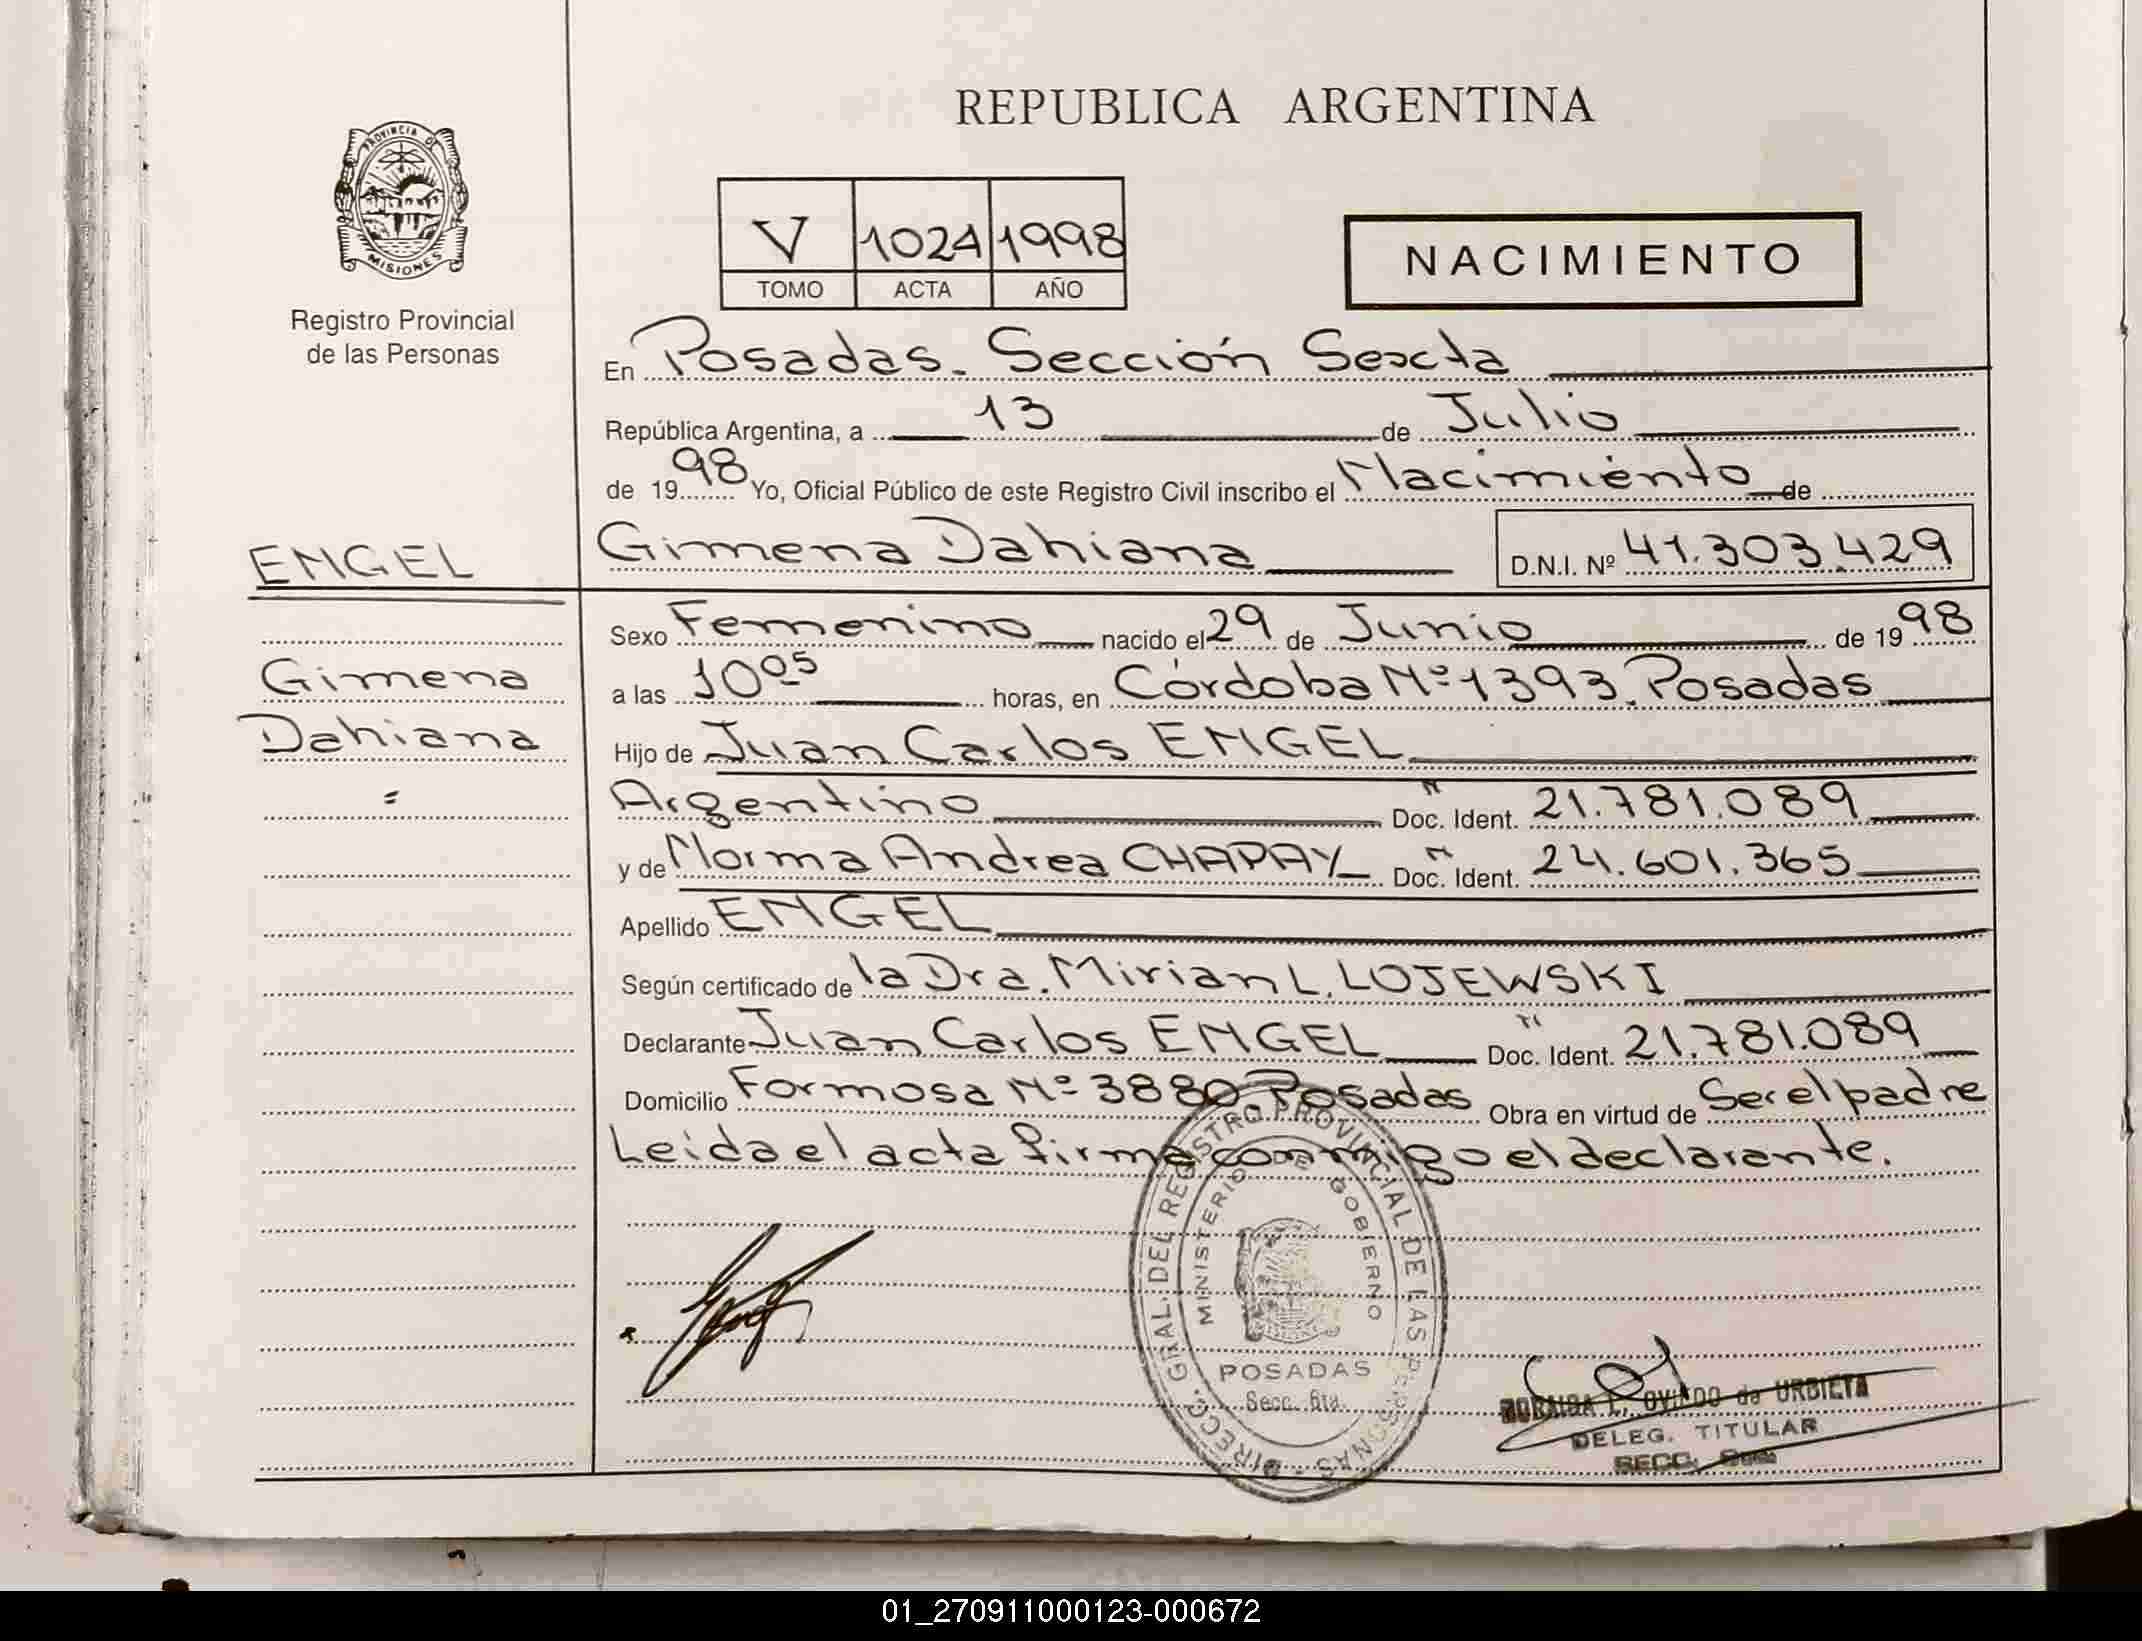 REPUBLICA ARGENTINA
PROVINCIA DE
MISIONES
Registro Provincial
de las Personas
V 1024 1998
TOMO ACTA AÑO
NACIMIENTO
En Posadas. Sección Sexta
República Argentina, a 13 de Julio
de 1998 Yo, Oficial Público de este Registro Civil inscribo el Nacimiento de
Gimena Dahiana D.N.I. Nº 41.303.429
ENGEL
Gimena
Dahiana
Sexo Femenino nacido el 29 de Junio de 1998
a las 10 05 horas, en Córdoba Nº 1393. Posadas
Hijo de Juan Carlos ENGEL
Argentino Doc. Ident. 21.781.089
y de Norma Andrea CHAPAY Doc. Ident. 24.601.365
Apellido ENGEL
Según certificado de la Dra. Mirian L. LOJEWSKI
Declarante Juan Carlos ENGEL Doc. Ident. 21.781.089
Domicilio Formosa Nº 3880 Posadas Obra en virtud de Ser el padre
Leida el acta firma conmigo el declarante.
DIRECC. GRAL. DEL REGISTRO PROVINCIAL DE LAS PERSONAS
MINISTERIO DE GOBIERNO
POSADAS
Secc. 6ta.
L. OVIEDO de URBIETA
DELEG. TITULAR
SECC.
01_270911000123-000672